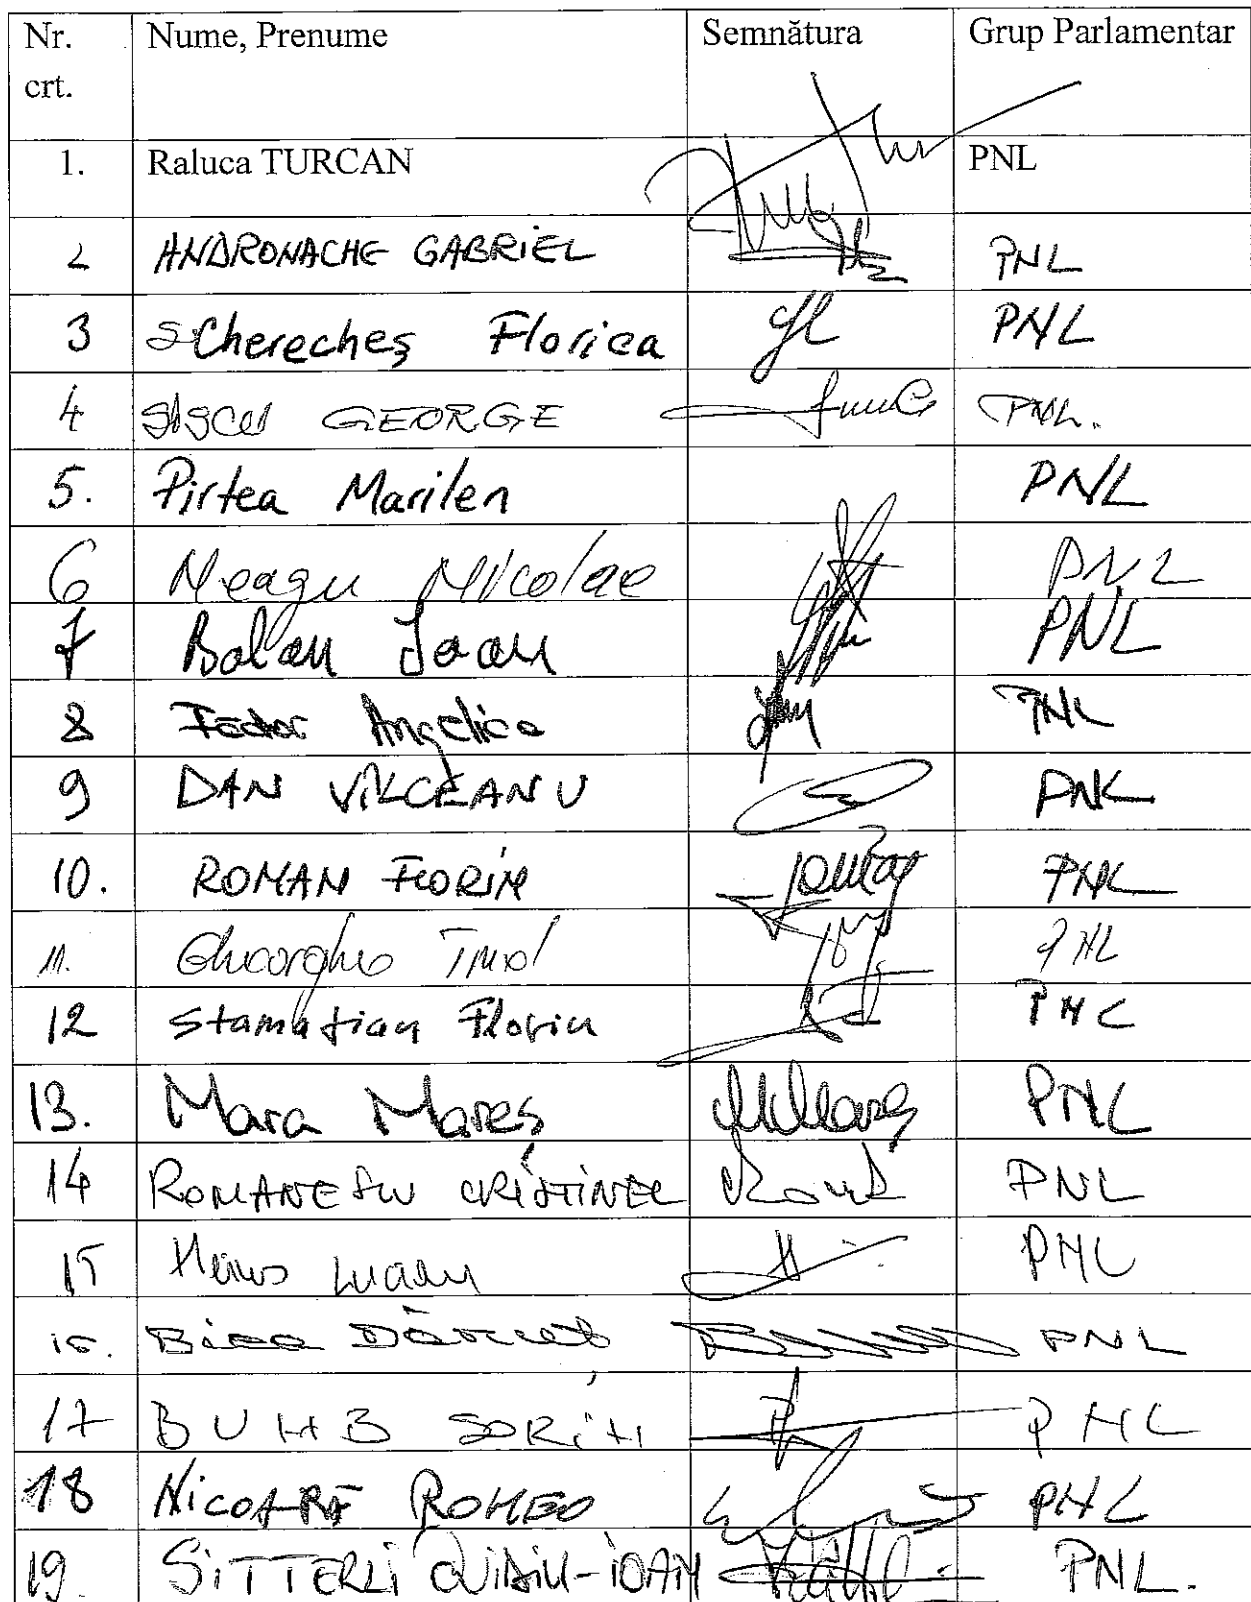 Nr. crt. Nume, Prenume Semnătura Grup Parlamentar
1. Raluca TURCAN PNL
2 ANDRONACHE GABRIEL PNL
3 Scherecheș Florica PNL
4 GEORGE PNL.
5. Pirtea Marilen PNL
6 Neagu Nicolae PNL
7 Balan Ioan PNL
8 Fador Angelica PNL
9 DAN VÎLCEANU PNL
10. ROMAN FLORIN PNL
11. Gheorghe Tinel PNL
12 Stamatian Florin PNL
13. Mara Mareș PNL
14 ROMANESCU CRISTINEL PNL
15 Heius Lucian PNL
16. Bica Dănuț PNL
17 BUMB SORIN PNL
18 NICOARĂ ROMEO PNL
19. SITTERLI OVIDIU-IOAN PNL.